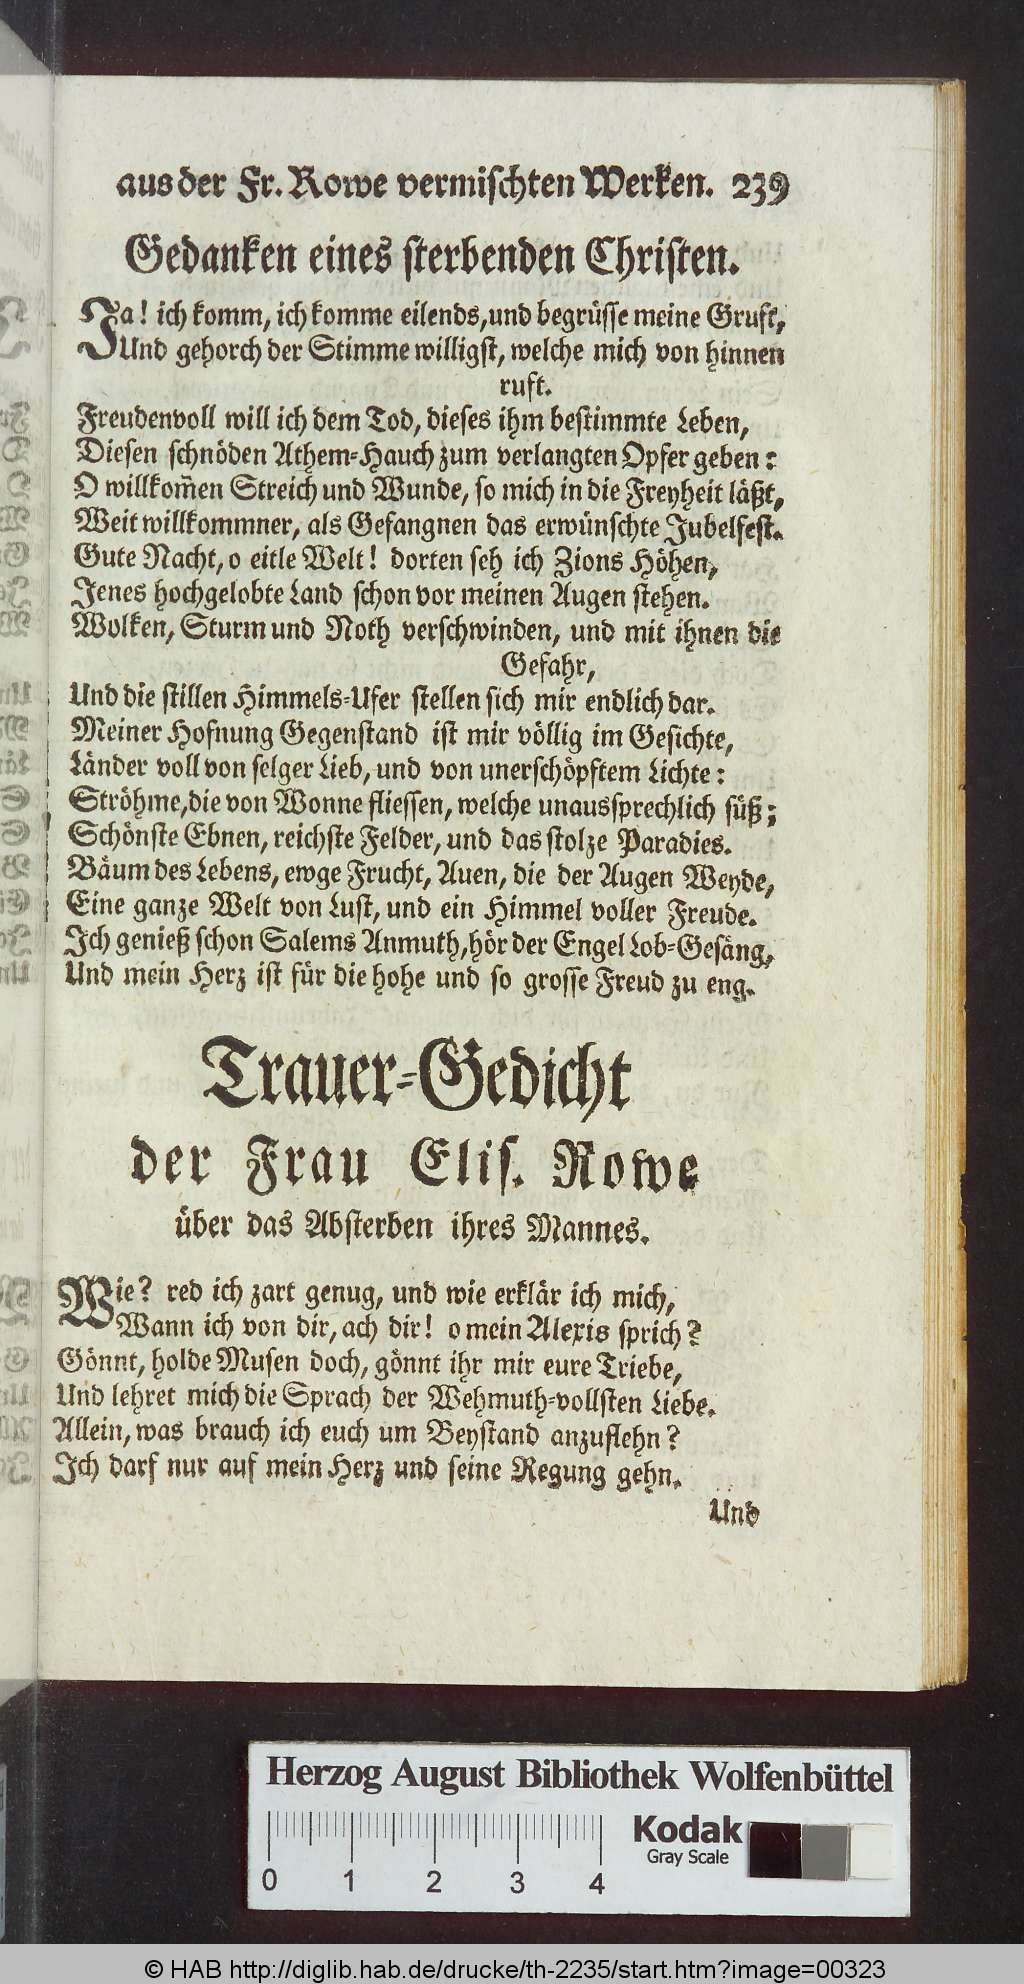 aus der Fr. Rowe vermischten Werken. 239
Gedanken eines sterbenden Christen.
Ja! ich komm, ich komme eilends, und begrüsse meine Gruft,
Und gehorch der Stimme willigst, welche mich von hinnen
ruft.
Freudenvoll will ich dem Tod, dieses ihm bestimmte Leben,
Diesen schnöden Athem-Hauch zum verlangten Opfer geben:
O willkom̃en Streich und Wunde, so mich in die Freyheit läßt,
Weit willkommner, als Gefangnen das erwünschte Jubelfest.
Gute Nacht, o eitle Welt! dorten seh ich Zions Höhen,
Jenes hochgelobte Land schon vor meinen Augen stehen.
Wolken, Sturm und Noth verschwinden, und mit ihnen die
Gefahr,
Und die stillen Himmels-Ufer stellen sich mir endlich dar.
Meiner Hofnung Gegenstand ist mir völlig im Gesichte,
Länder voll von selger Lieb, und von unerschöpftem Lichte:
Ströhme, die von Wonne fliessen, welche unaussprechlich süß;
Schönste Ebnen, reichste Felder, und das stolze Paradies.
Bäum des Lebens, ewge Frucht, Auen, die der Augen Weyde,
Eine ganze Welt von Lust, und ein Himmel voller Freude.
Ich genieß schon Salems Anmuth, hör der Engel Lob-Gesäng,
Und mein Herz ist für die hohe und so grosse Freud zu eng.
Trauer-Gedicht
der Frau Elis. Rowe
über das Absterben ihres Mannes.
Wie? red ich zart genug, und wie erklär ich mich,
Wann ich von dir, ach dir! o mein Alexis sprich?
Gönnt, holde Musen doch, gönnt ihr mir eure Triebe,
Und lehret mich die Sprach der Wehmuth-vollsten Liebe.
Allein, was brauch ich euch um Beystand anzuflehn?
Ich darf nur auf mein Herz und seine Regung gehn.
Und
Herzog August Bibliothek Wolfenbüttel
Kodak
Gray Scale
0 1 2 3 4
© HAB http://diglib.hab.de/drucke/th-2235/start.htm?image=00323